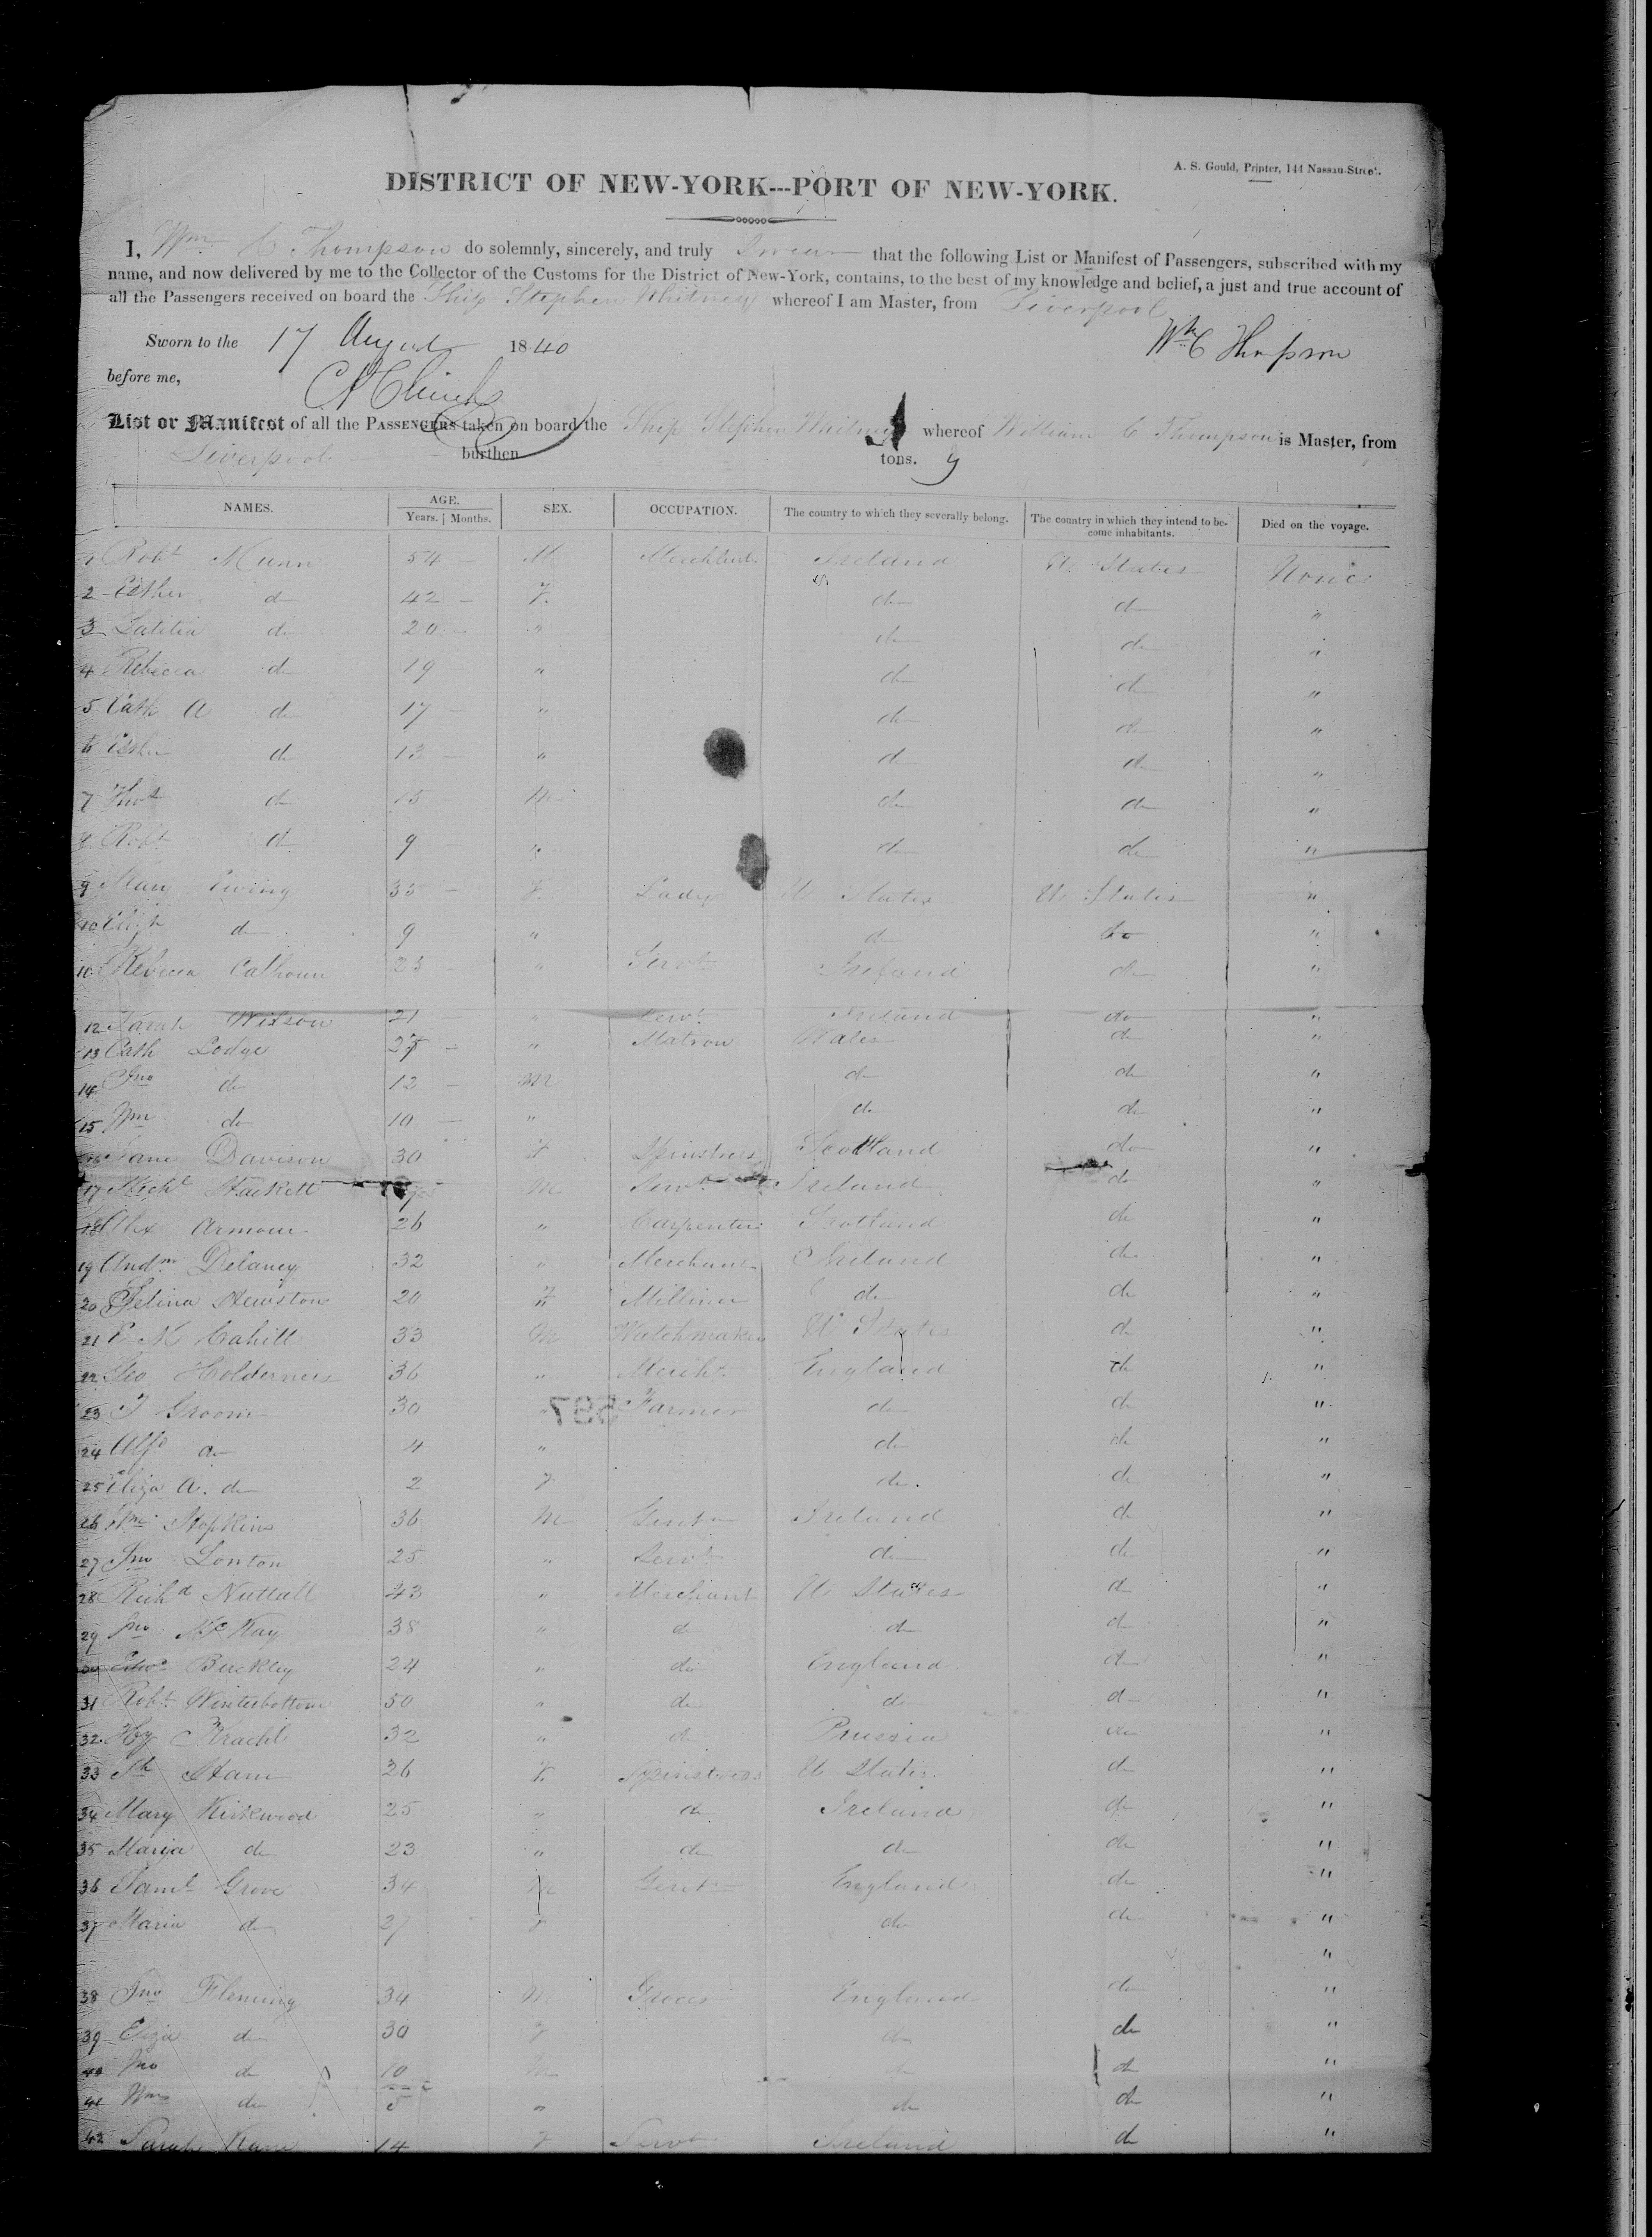 A. S. Gould, Printer, 144 Nassau Street.
DISTRICT OF NEW-YORK---PORT OF NEW-YORK.
I, Wm C Thompson do solemnly, sincerely, and truly Swear that the following List or Manifest of Passengers, subscribed with my
name, and now delivered by me to the Collector of the Customs for the District of New-York, contains, to the best of my knowledge and belief, a just and true account of
all the Passengers received on board the Ship Stephen Whitney whereof I am Master, from Liverpool
Sworn to the 17 August 1840 Wm C Thompson
before me,
List or Manifest of all the PASSENGERS taken on board the Ship Stephen Whitney whereof William C Thompson is Master, from
Liverpool burthen tons.
NAMES. AGE. SEX. OCCUPATION. The country to which they severally belong. The country in which they intend to become inhabitants. Died on the voyage.
Years. Months.
1 Robt Munn 54 M Ireland U. States None
2 Esther do 42 F. do do "
3 Latitia do 20 " do do "
4 Rebecca do 19 " do do "
5 Cath A do 17 " do do "
6 Esther do 13 " do do "
7 do 15 M do do "
8 Robt do 9 " do do "
9 Mary Ewing 35 F. Lady U States U States "
10 do 9 " do do "
Rebecca Calhoun 23 " Servt Ireland do "
12 Sarah Wilson 21 " Servt Ireland do "
13 Cath Lodge " Matron Wales do "
14 Jno do 12 M do do "
15 Wm do 10 " do do "
16 Jane Davison 30 F Spinstress Scotland do "
17 Hackett M Servt Ireland do "
18 Alex Armour 26 " Carpenter Scotland do "
19 Andw Delaney 32 " Merchant Ireland do "
20 Selina Hewston 20 F Milliner do do "
21 P M Cahill 33 M Watchmaker U States do "
22 Geo Holderness 36 " Mercht England do "
23 J Groom 30 " Farmer do do "
24 Alfd do 4 " do do "
25 Eliza A. do 2 F do. do "
26 Wm Hopkins 36 M Gentn Ireland do "
27 Jno Lonton 25 " Servt do do "
28 Richd Nuttall 43 " Merchant U States do "
29 Jno McKay 38 " do do do "
30 Edwd Buckley 24 " do England do "
31 Robt Winterbottom 50 " do do do "
32 Hy 32 " do Prussia do "
33 Ham 26 F. Spinstress U States do "
34 Mary Kirkwood 25 " do Ireland do "
35 Maria do 23 " do do do "
36 Saml Grove 34 M Gentn England do "
37 Maria do 27 F do do "
"
38 Jno Fleming 34 M Grocer England do "
39 Eliza do 30 F do do "
40 Jno do 10 M do do "
41 Wm do 5 " do do "
42 Sarah Kane 14 F Servt Ireland do "